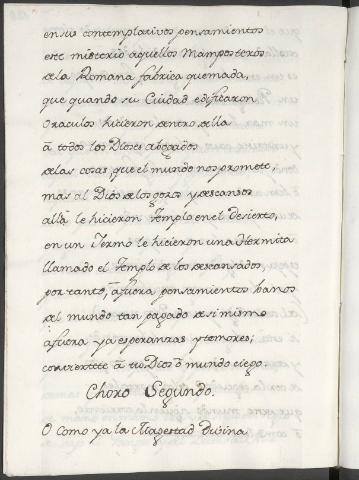 en sus contemplativos pensamientos
este misterio aquellos Mamposteros
de la Romana fabrica quemada,
que quando su Ciudad edificaron
Oraculos hicieron dentro della
â todos los Dioses abogados
de las cosas, que el mundo nos promete,
mas al Dios de los gozos y descansos
allâ le hicieron Templo en el Desierto,
en un Yermo le hicieron una Hermita
llamado el Templo de los descansados,
por tanto, âfuera pensamientos banos
del mundo tan pagado de si mismo
afuera ya esperanzas y temores;
conviertete â tu Dios ô mundo ciego.
Choro Segundo.
O Como ya la Magestad Divina